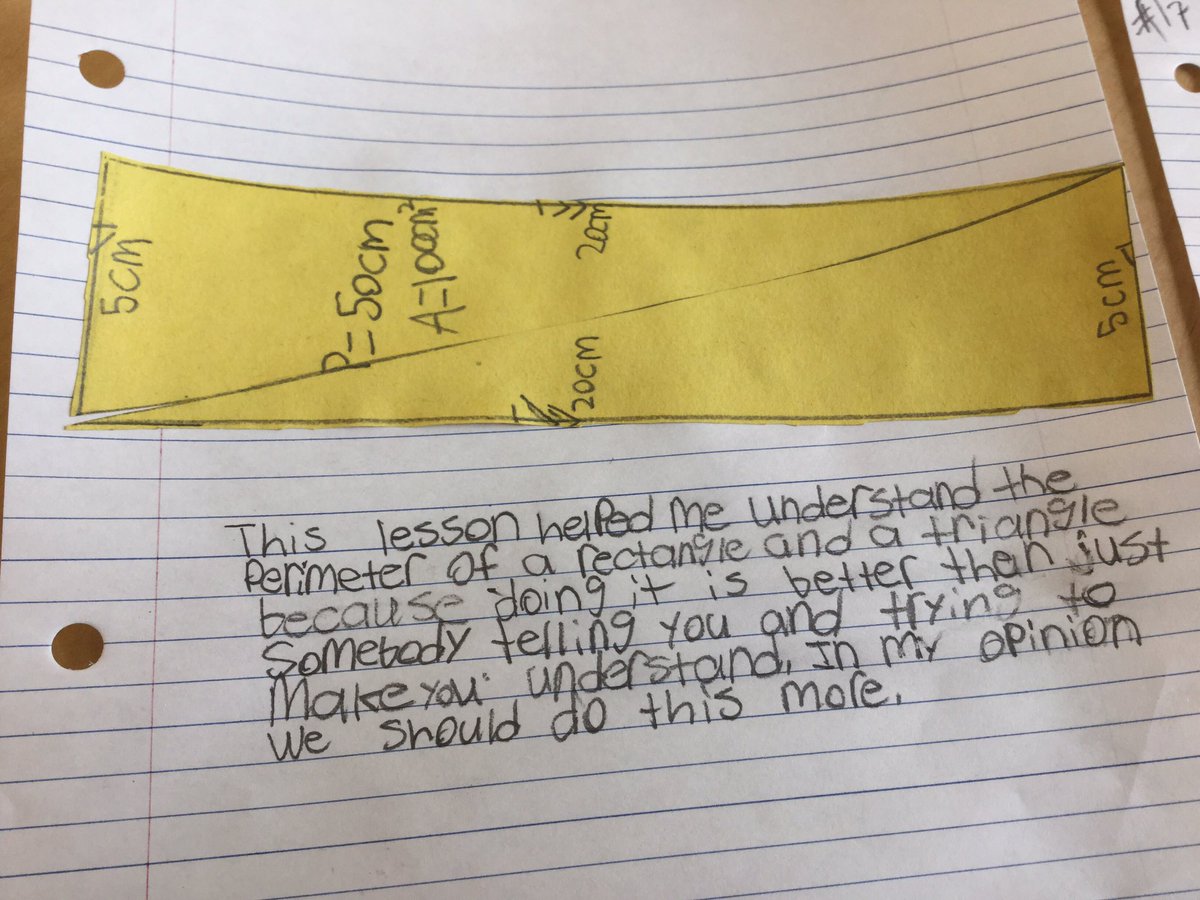 #17
5cm
P=50cm
A=100cm²
20cm
20cm
5cm
This lesson helped me understand the
Perimeter of a rectangle and a triangle
because doing it is better then just
Somebody telling you and trying to
Make you understand. In my opinion
we should do this more.